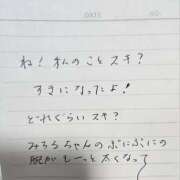 DATE
NO.
ね！私のことスキ？
すきになったよ！
どれぐらいスキ？
みるるちゃんのぷにぷにの
腕がもーっと太くなって